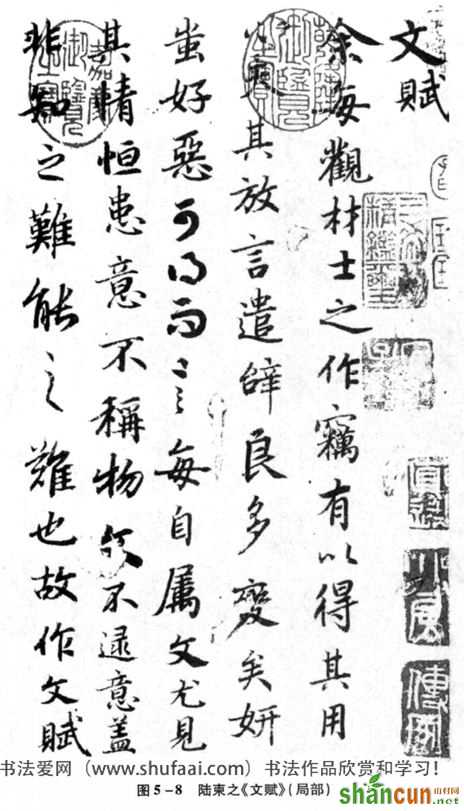 文賦
余每觀材士之作竊有以得其用
其放言遣辭良多變矣妍
蚩好惡可得而言每自属文尤見
其情恒患意不稱物文不逮意盖
非知之難能之難也故作文賦
书法爱网（www.shufaai.com）书法作品欣赏和学习！
图5-8 陆柬之《文赋》（局部）
shancun 山村网
.net